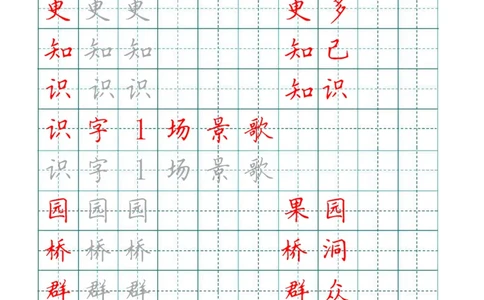 更更更 更多
知知知 知己
识识识 知识
识字1场景歌
识字1场景歌
园园园 果园
桥桥桥 桥洞
群群群 群众